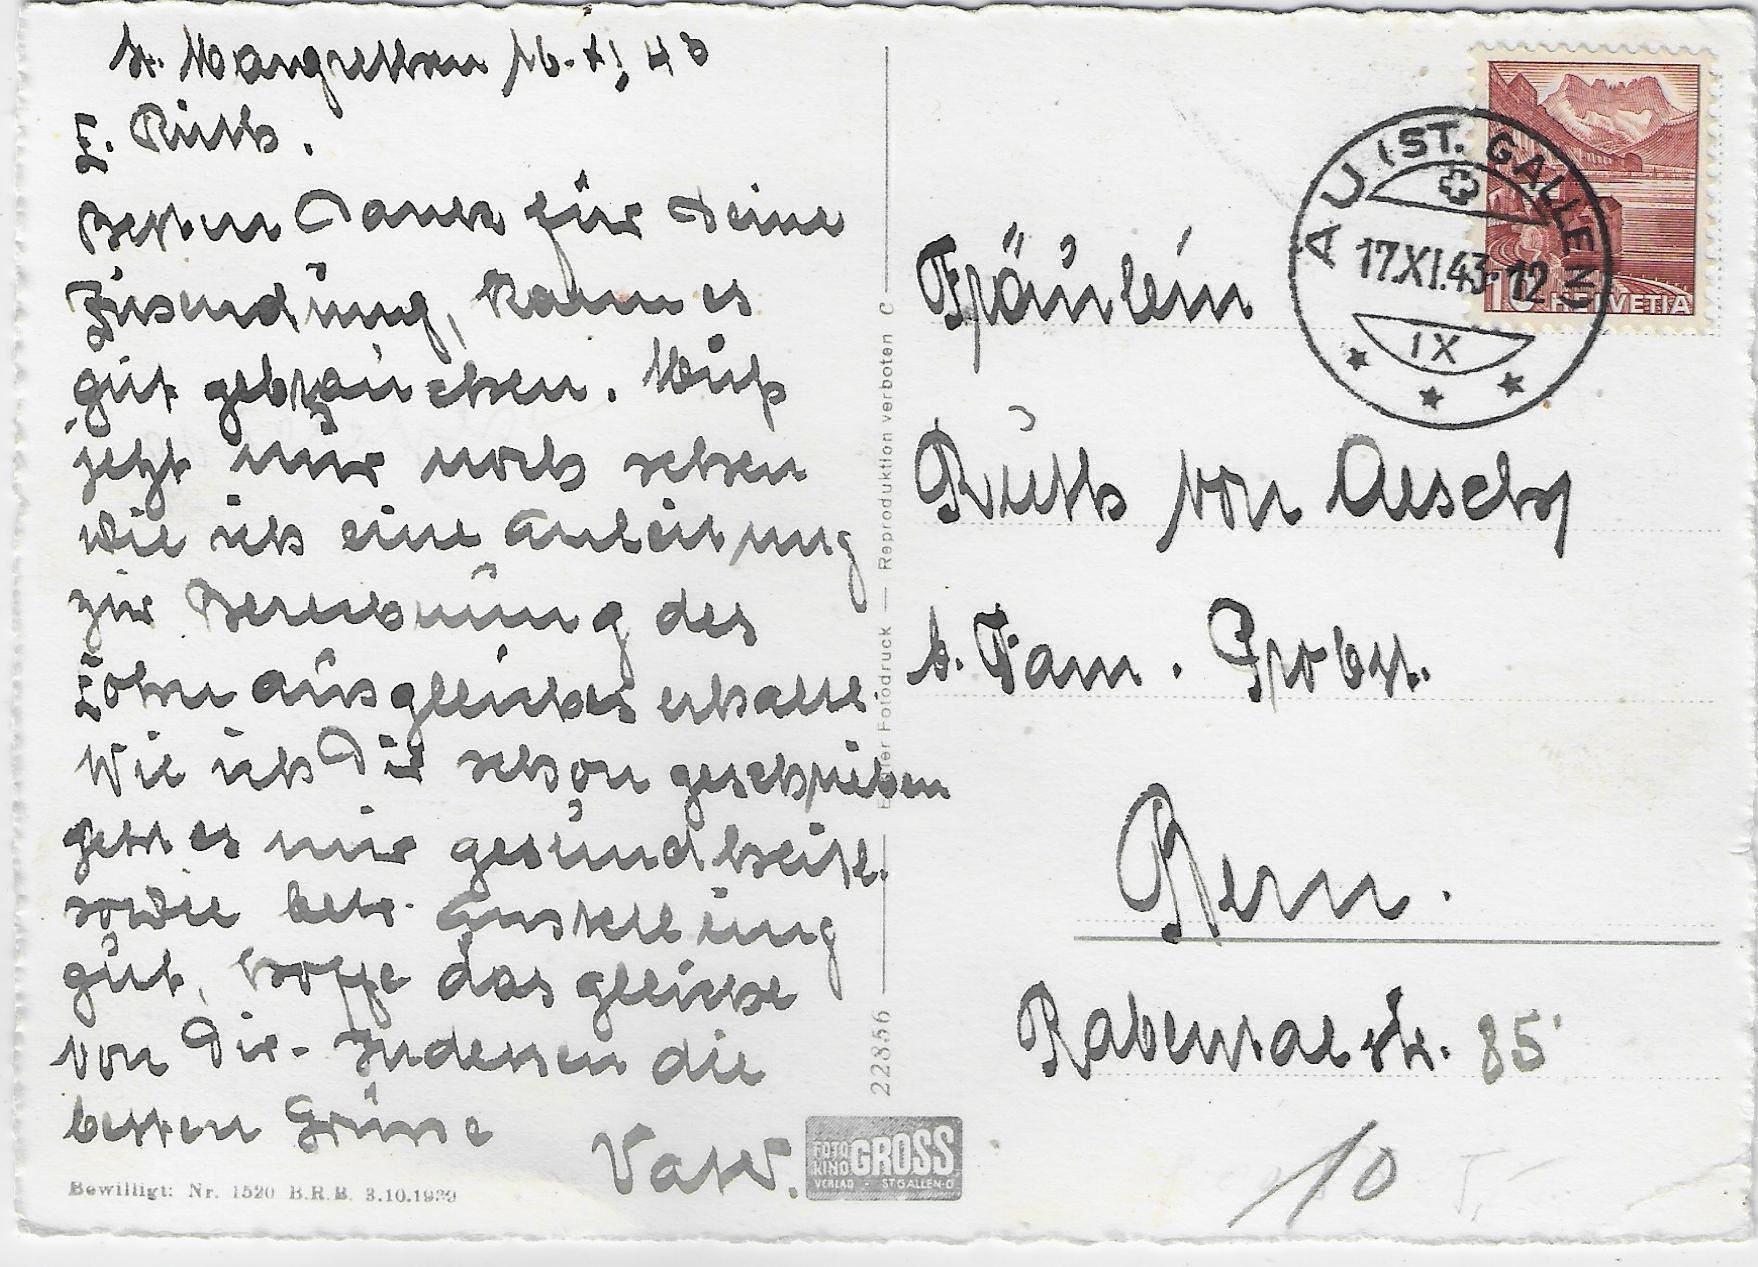 St. Margrethen 16. XI 43
L. Ruth.
Besten Dank für Deine
Zusendung, kann es
gut gebrauchen. Muss
jetzt nur noch sehen
wie ich eine Anleitung
zur Berechnung des
Lohnausgleiches erhalte.
Wie ich Dir schon geschrieben
geht es mir gesundheitl.
sowie betr. Anstellung
gut, hoffe das gleiche
von Dir. Indessen die
besten Grüsse
Vater.
Bewilligt: Nr. 1520 B.R.B. 3.10.1939
22856 — Echter Fotodruck — Reproduktion verboten C
FOTO KINO GROSS
VERLAG - ST GALLEN-O
AU (ST. GALLEN)
17.XI.43-12
IX
10 HELVETIA
Fräulein
Ruth von Aesch
b. Fam. Probst.
Bern.
Rabentalstr. 85
10